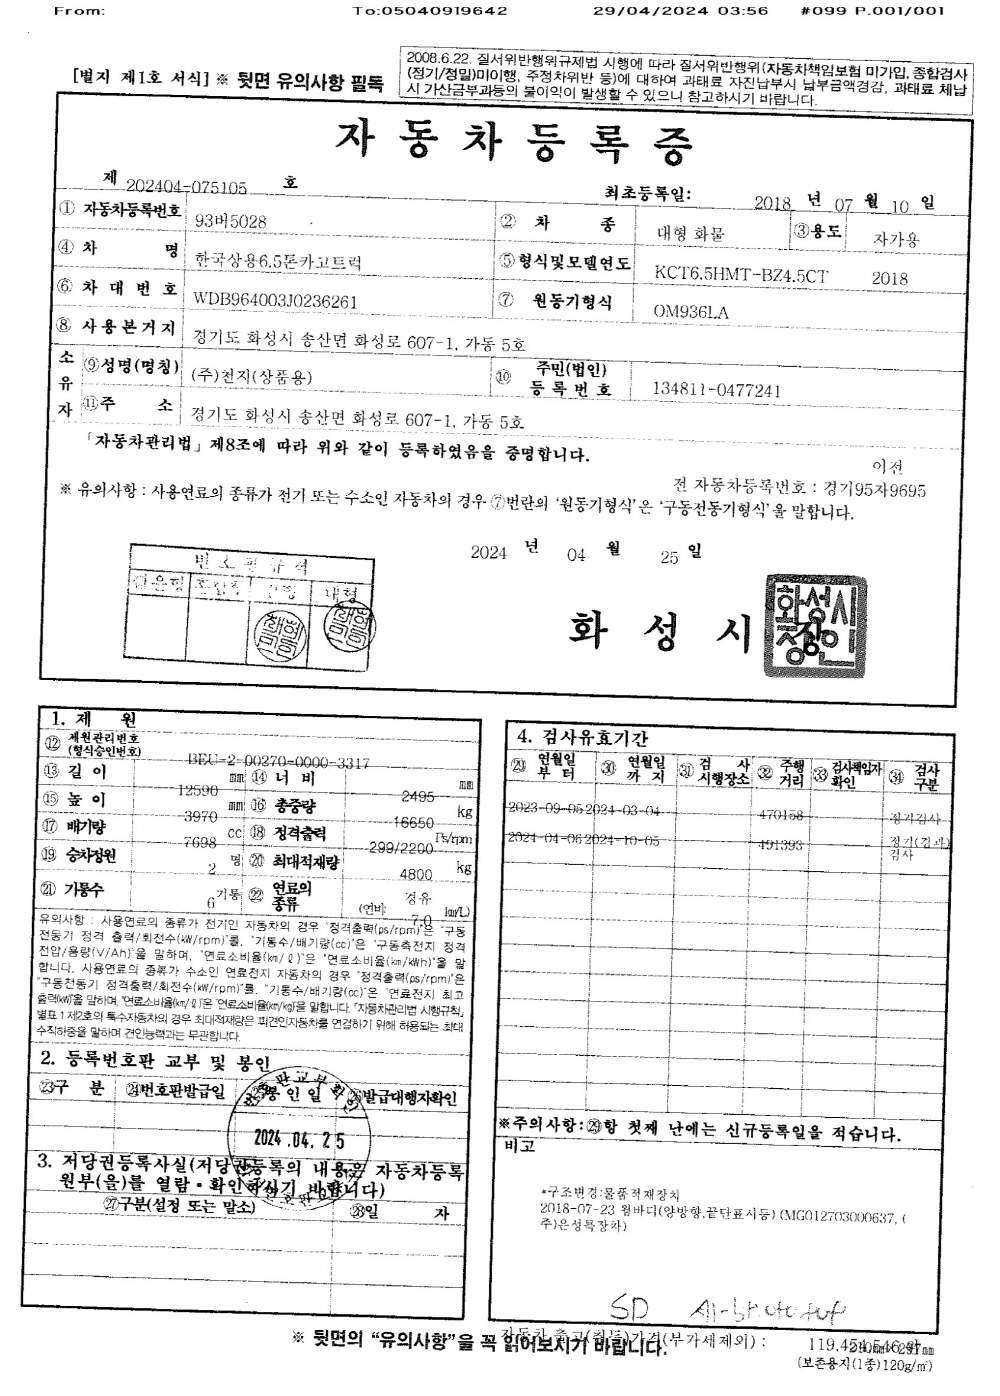 From: To:05040919642 29/04/2024 03:56 #099 P.001/001
[별지 제1호 서식] ※ 뒷면 유의사항 필독
2008.6.22. 질서위반행위규제법 시행에 따라 질서위반행위(자동차책임보험 미가입, 종합검사
(정기/정밀)미이행, 주정차위반 등)에 대하여 과태료 자진납부시 납부금액경감, 과태료 체납
시 가산금부과등의 불이익이 발생할 수 있으니 참고하시기 바랍니다.
자동차등록증
제 202404-075105 호 최초등록일: 2018 년 07 월 10 일
① 자동차등록번호 93버5028 ② 차 종 대형 화물 ③용도 자가용
④ 차 명 한국상용6.5톤카고트럭 ⑤형식및모델연도 KCT6.5HMT-BZ4.5CT 2018
⑥ 차 대 번 호 WDB964003J0236261 ⑦ 원동기형식 OM936LA
⑧ 사 용 본 거 지 경기도 화성시 송산면 화성로 607-1, 가동 5호
소유자 ⑨성명(명칭) (주)천지(상품용) ⑩ 주민(법인) 등록번호 134811-0477241
⑪주 소 경기도 화성시 송산면 화성로 607-1, 가동 5호
「자동차관리법」제8조에 따라 위와 같이 등록하였음을 증명합니다.
이전
전 자동차등록번호 : 경기95자9695
※ 유의사항 : 사용연료의 종류가 전기 또는 수소인 자동차의 경우 ⑦번란의 '원동기형식'은 '구동전동기형식'을 말합니다.
2024 년 04 월 25 일
번 호 판 규 격
대형
화 성 시 장
화성시장인
1. 제 원
⑫ 제원관리번호 (형식승인번호) BEU-2-00270-0000-3317
⑬ 길 이 12590 mm ⑭ 너 비 2495 mm
⑮ 높 이 3970 mm ⑯ 총중량 16650 kg
⑰ 배기량 7698 cc ⑱ 정격출력 299/2200 Ps/rpm
⑲ 승차정원 2 명 ⑳ 최대적재량 4800 kg
㉑ 기통수 6 기통 ㉒ 연료의 종류 경유 (연비: 7.0 km/L)
유의사항 : 사용연료의 종류가 전기인 자동차의 경우 "정격출력(ps/rpm)"은 "구동
전동기 정격 출력/회전수(kW/rpm)"를, "기통수/배기량(cc)"은 "구동축전지 정격
전압/용량(V/Ah)"을 말하며, "연료소비율(km/ℓ)"은 "연료소비율(km/kWh)"을 말
합니다. 사용연료의 종류가 수소인 연료전지 자동차의 경우 "정격출력(ps/rpm)"은
"구동전동기 정격출력/회전수(kW/rpm)"를, "기통수/배기량(cc)"은 "연료전지 최고
출력(kW)"을 말하며, "연료소비율(km/ℓ)"은 "연료소비율(km/kg)"을 말합니다. 「자동차관리법 시행규칙」
별표 1 제2호의 특수자동차의 경우 최대적재량은 피견인자동차를 연결하기 위해 허용되는 최대
수직하중을 말하며 견인능력과는 무관합니다.
2. 등록번호판 교부 및 봉인
㉓구 분 ㉔번호판발급일 ㉕봉인일 ㉖발급대행자확인
2024.04.25
3. 저당권등록사실(저당권등록의 내용은 자동차등록
원부(을)를 열람·확인하시기 바랍니다)
㉗구분(설정 또는 말소) ㉘일 자
4. 검사유효기간
㉙ 연월일 부터 ㉚ 연월일 까지 ㉛ 검사 시행장소 ㉜ 주행 거리 ㉝ 검사책임자 확인 ㉞ 검사 구분
2023-09-05 2024-03-04 470158 정기검사
2024-04-06 2024-10-05 491393 정기(경과)검사
※주의사항:㉙항 첫째 난에는 신규등록일을 적습니다.
비고
*구조변경:물품적재장치
2018-07-23 윙바디(양방향,끝단표시등) (MG012703000637, (
주)은성특장차)
SD
자동차 출고(취득)가격(부가세제외) : 119,454,546원
※ 뒷면의 "유의사항"을 꼭 읽어보시기 바랍니다.
(보존용지(1종)120g/㎡)